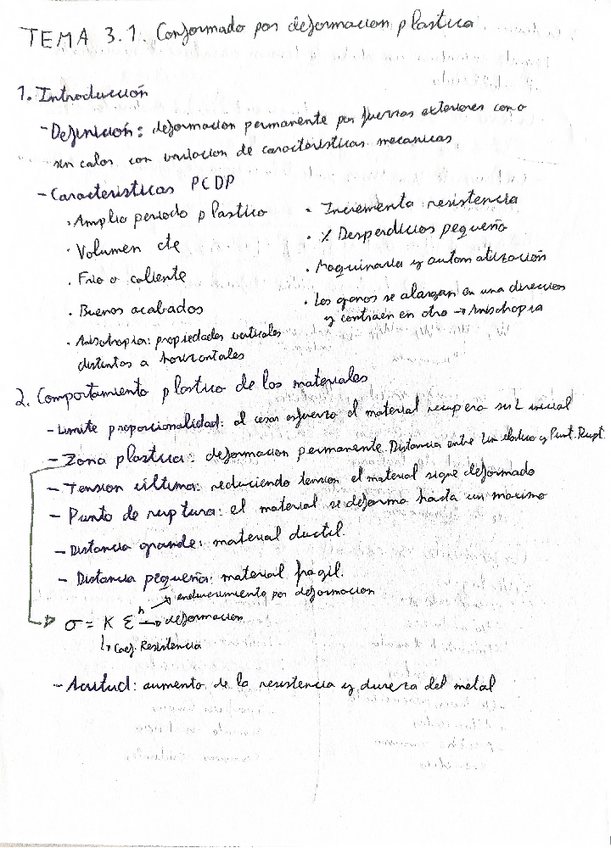 TEMA 3.1. Conformado por deformacion plastica
1. Introducción
- Definición: deformacion permanente por fuerzas exteriores con o
sin calor con variacion de caracteristicas mecanicas
- Caracteristicas PCDP
· Amplio periodo plastico
· Volumen cte
· Frio o caliente
· Buenos acabados
· Anisotropia: propiedades verticales
distintas a horizontales
· Incrementa resistencia
· % Desperdicios pequeño
· Maquinaria y automatización
· Los granos se alargan en una direccion
y contraen en otro → Anisotropia
2. Comportamiento plastico de los materiales
- Limite proporcionalidad: al cesar esfuerzo el material recupera su L inicial
- Zona plastica: deformacion permanente. Distancia entre Lim elastico y Punt. Rupt.
- Tension última: reduciendo tension el material sigue deformado
- Punto de ruptura: el material se deforma hasta un maximo
- Distancia grande: material ductil.
- Distancia pequeña: material fragil.
→ endurecimiento por deformacion
σ = K ε^n → deformacion
↳ Coef. Resistencia
- Acritud: aumento de la resistencia y dureza del metal